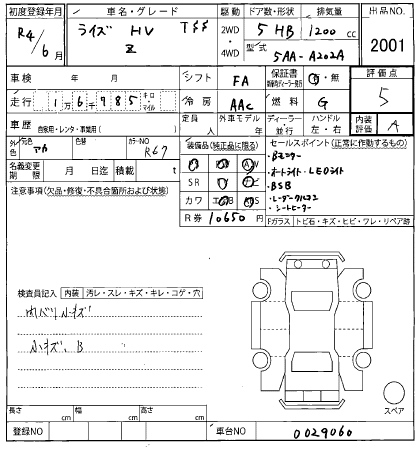 初度登録年月 車名・グレード 駆動 ドア数・形状 排気量 出品NO.
R4/6月 ライズ HV Z 2WD・4WD 5 HB 1200 cc 2001
型式 5AA-A202A
車検 年 月 シフト FA 保証書 有・無 評価点
走行 1万6千785 キロ・マイル 冷房 AAC 燃料 G 5
車歴 自家用・レンタ・事業用( ) 定員 人 外車モデル 年 ディーラー・並行 ハンドル 左・右 内装評価 A
外色 元色 アカ 色替 カラーNO R67 装備品(純正品に限る) セールスポイント(正常に作動するもの)
・Bモニター
名義変更期限 月 日迄 積載 t ・オートライト・LEDライト
SR ・BSB
注意事項(欠品・修復・不具合箇所および状態) カワ ABS ・レーダークルコン
・シートヒーター
R券 10650 円 Fガラス トビ石・キズ・ヒビ・ワレ・リペア跡
検査員記入 内装 汚レ・スレ・キズ・キレ・コゲ・穴
小キズ、B
スペア
長さ cm 幅 cm 高さ cm
登録NO 車台NO 0029060